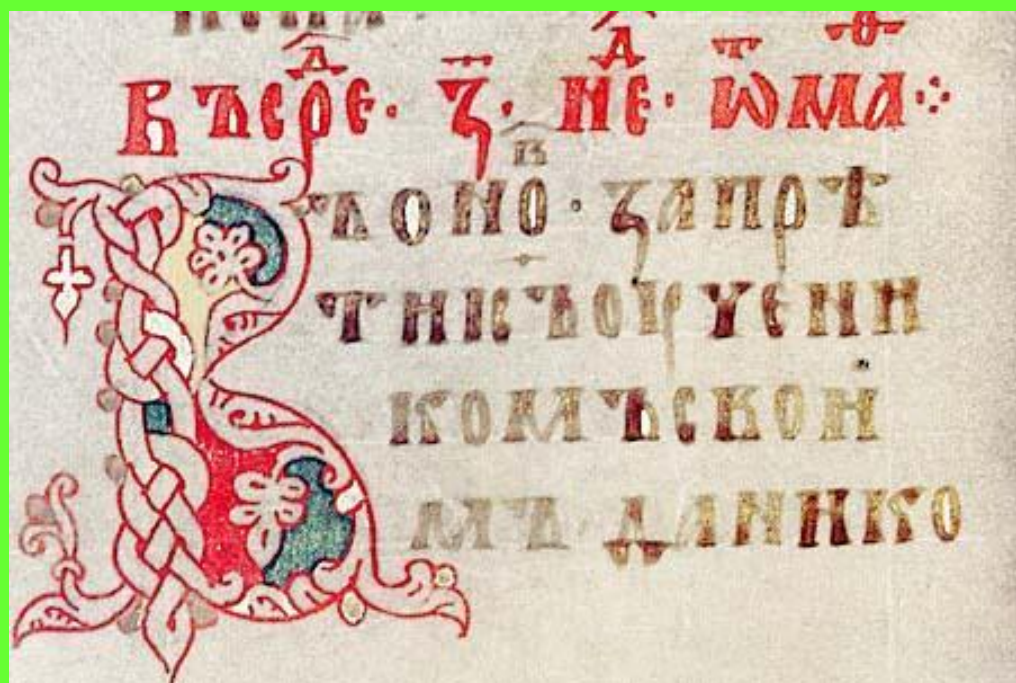 Въсрⷣе · з҃ · неⷣ · ѿмаⷴ ⁘
Въоноⷡ · запрѣ
тиісъоучени
комъсвои
мъ данико